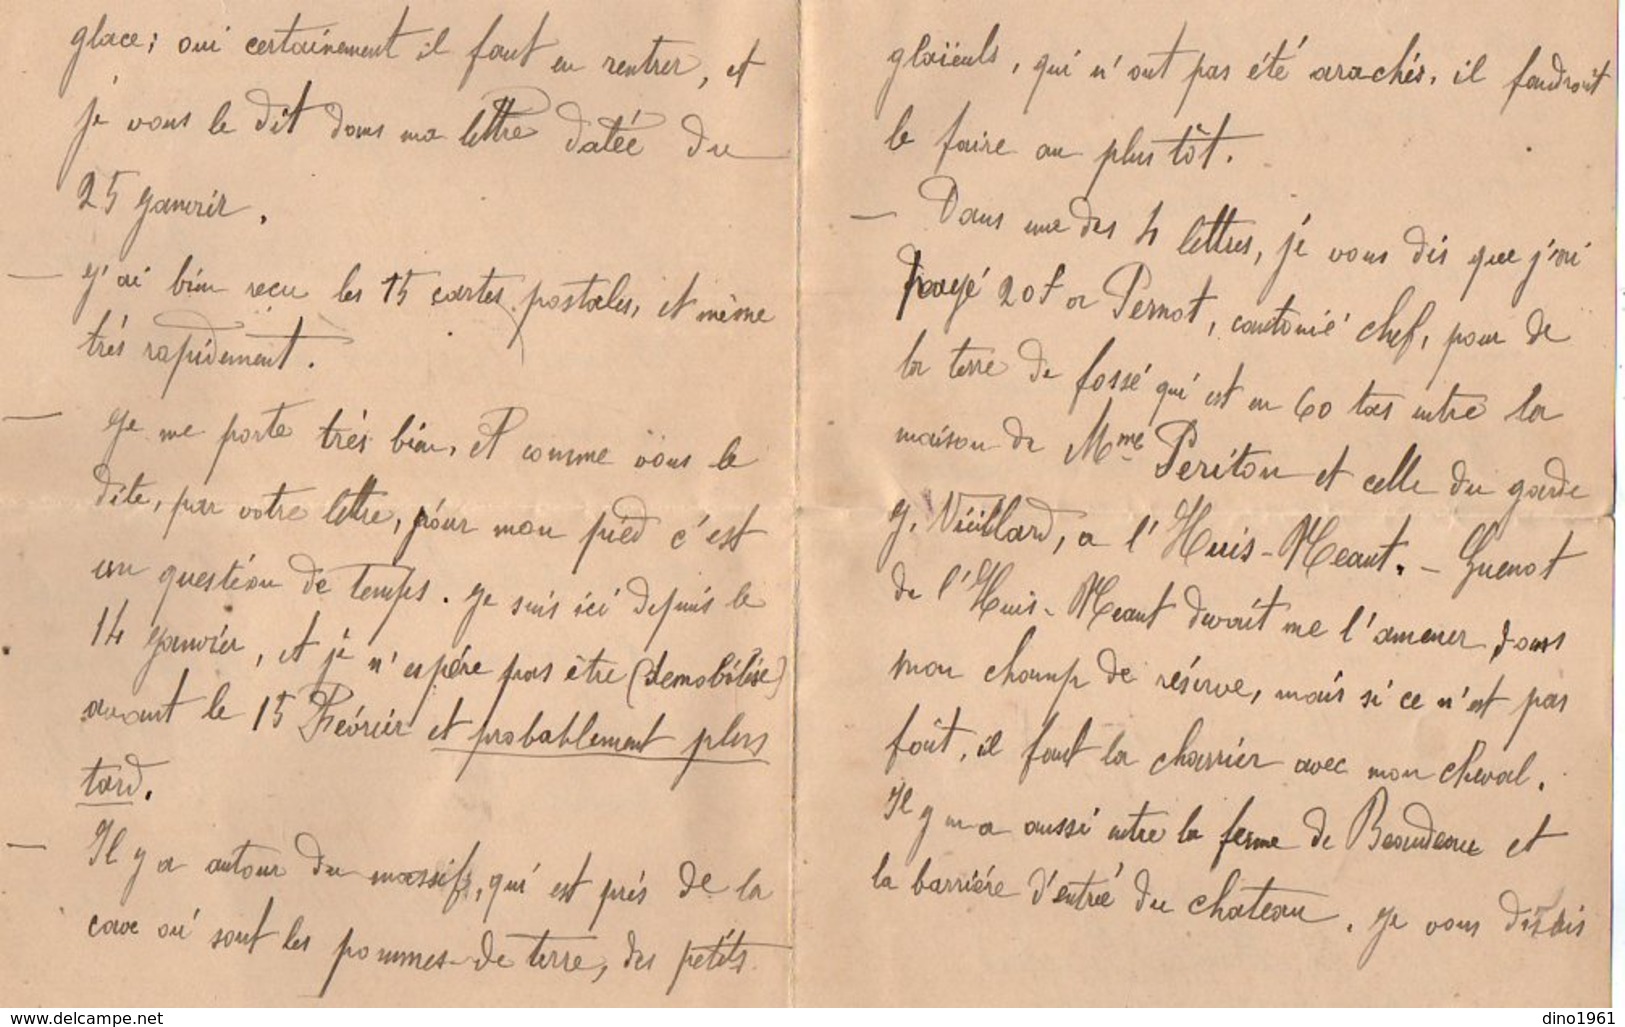 glace; oui certainement il faut en rentrer, et
je vous le dit dans ma lettre datée du
25 Janvier.
— J'ai bien reçu les 15 cartes postales, et même
très rapidement.
— Je me porte très bien, et comme vous le
dite, par votre lettre, pour mon pied c'est
un question de temps. Je suis ici depuis le
14 Janvier, et je n'espére pas être (demobilisé)
avant le 15 Février et probablement plus
tard.
— Il y a autour du massif, qui est près de la
cave où sont les pommes-de terre, des petits
glaïeuls, qui n'ont pas été arachés, il faudrait
le faire au plus tôt.
— Dans une des 4 lettres, je vous dis que j'ai
payé 20f a Pernot, cantonié chef, pour de
la terre de fossé qui est en 60 tas entre la
maison de Mme Periton et celle du garde
J. Vieillard, a l'Huis-Meant. — Guenot
de l'Huis-Meant devait me l'amener dans
mon champ de réserve, mais si ce n'est pas
fait, il faut la charrier avec mon cheval.
Il y en a aussi entre la ferme de Beaudeau et
la barrière d'entrée du chateau. Je vous disais
www.delcampe.net
dino1961